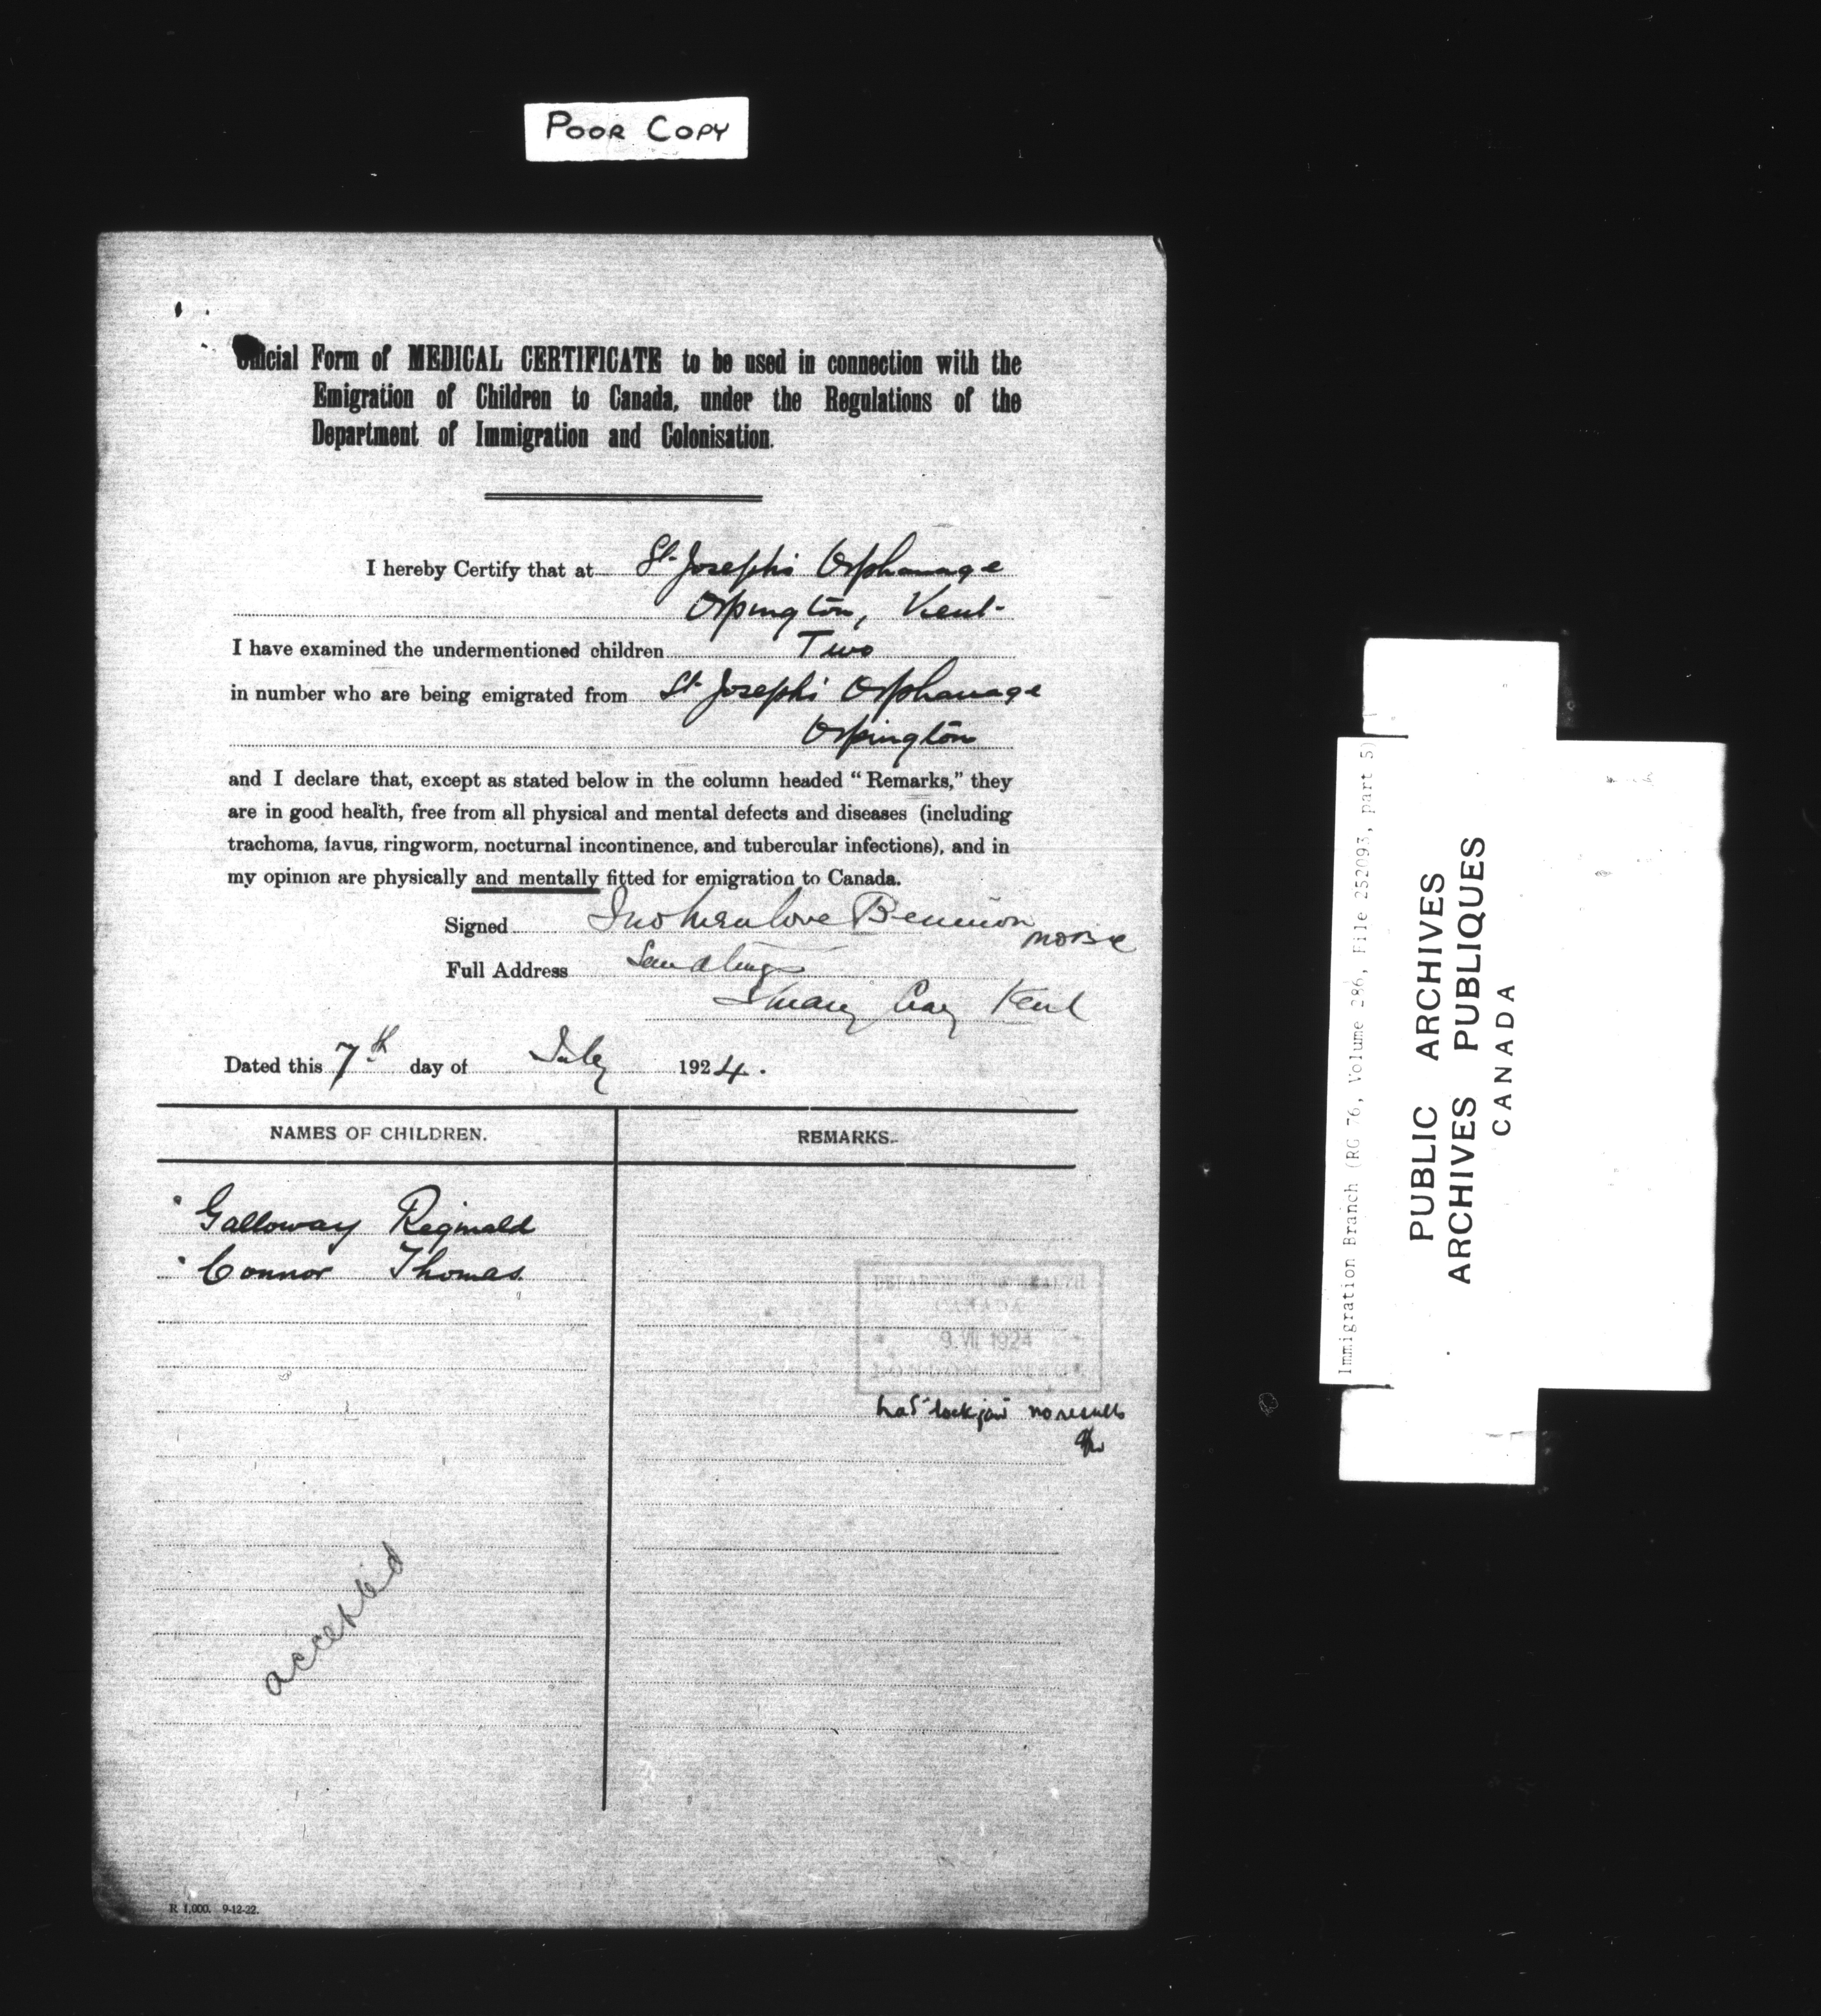 POOR COPY
Official Form of MEDICAL CERTIFICATE to be used in connection with the
Emigration of Children to Canada, under the Regulations of the
Department of Immigration and Colonisation.
I hereby Certify that at St. Joseph's Orphanage
Orpington, Kent.
I have examined the undermentioned children Two
in number who are being emigrated from St. Joseph's Orphanage
Orpington
and I declare that, except as stated below in the column headed "Remarks," they
are in good health, free from all physical and mental defects and diseases (including
trachoma, favus, ringworm, nocturnal incontinence, and tubercular infections), and in
my opinion are physically and mentally fitted for emigration to Canada.
Signed Bennion
Full Address Sandlings
St Mary Cray Kent
Dated this 7th day of July 1924.
NAMES OF CHILDREN. REMARKS.
Galloway Reginald
Connor Thomas.
DEPARTMENT OF HEALTH
CANADA
9. VII 1924
had "lockjaw" no results
accepted
R 1,000. 9-12-22.
Immigration Branch (RG 76, Volume 286, File 252093, part 5)
PUBLIC ARCHIVES
ARCHIVES PUBLIQUES
CANADA